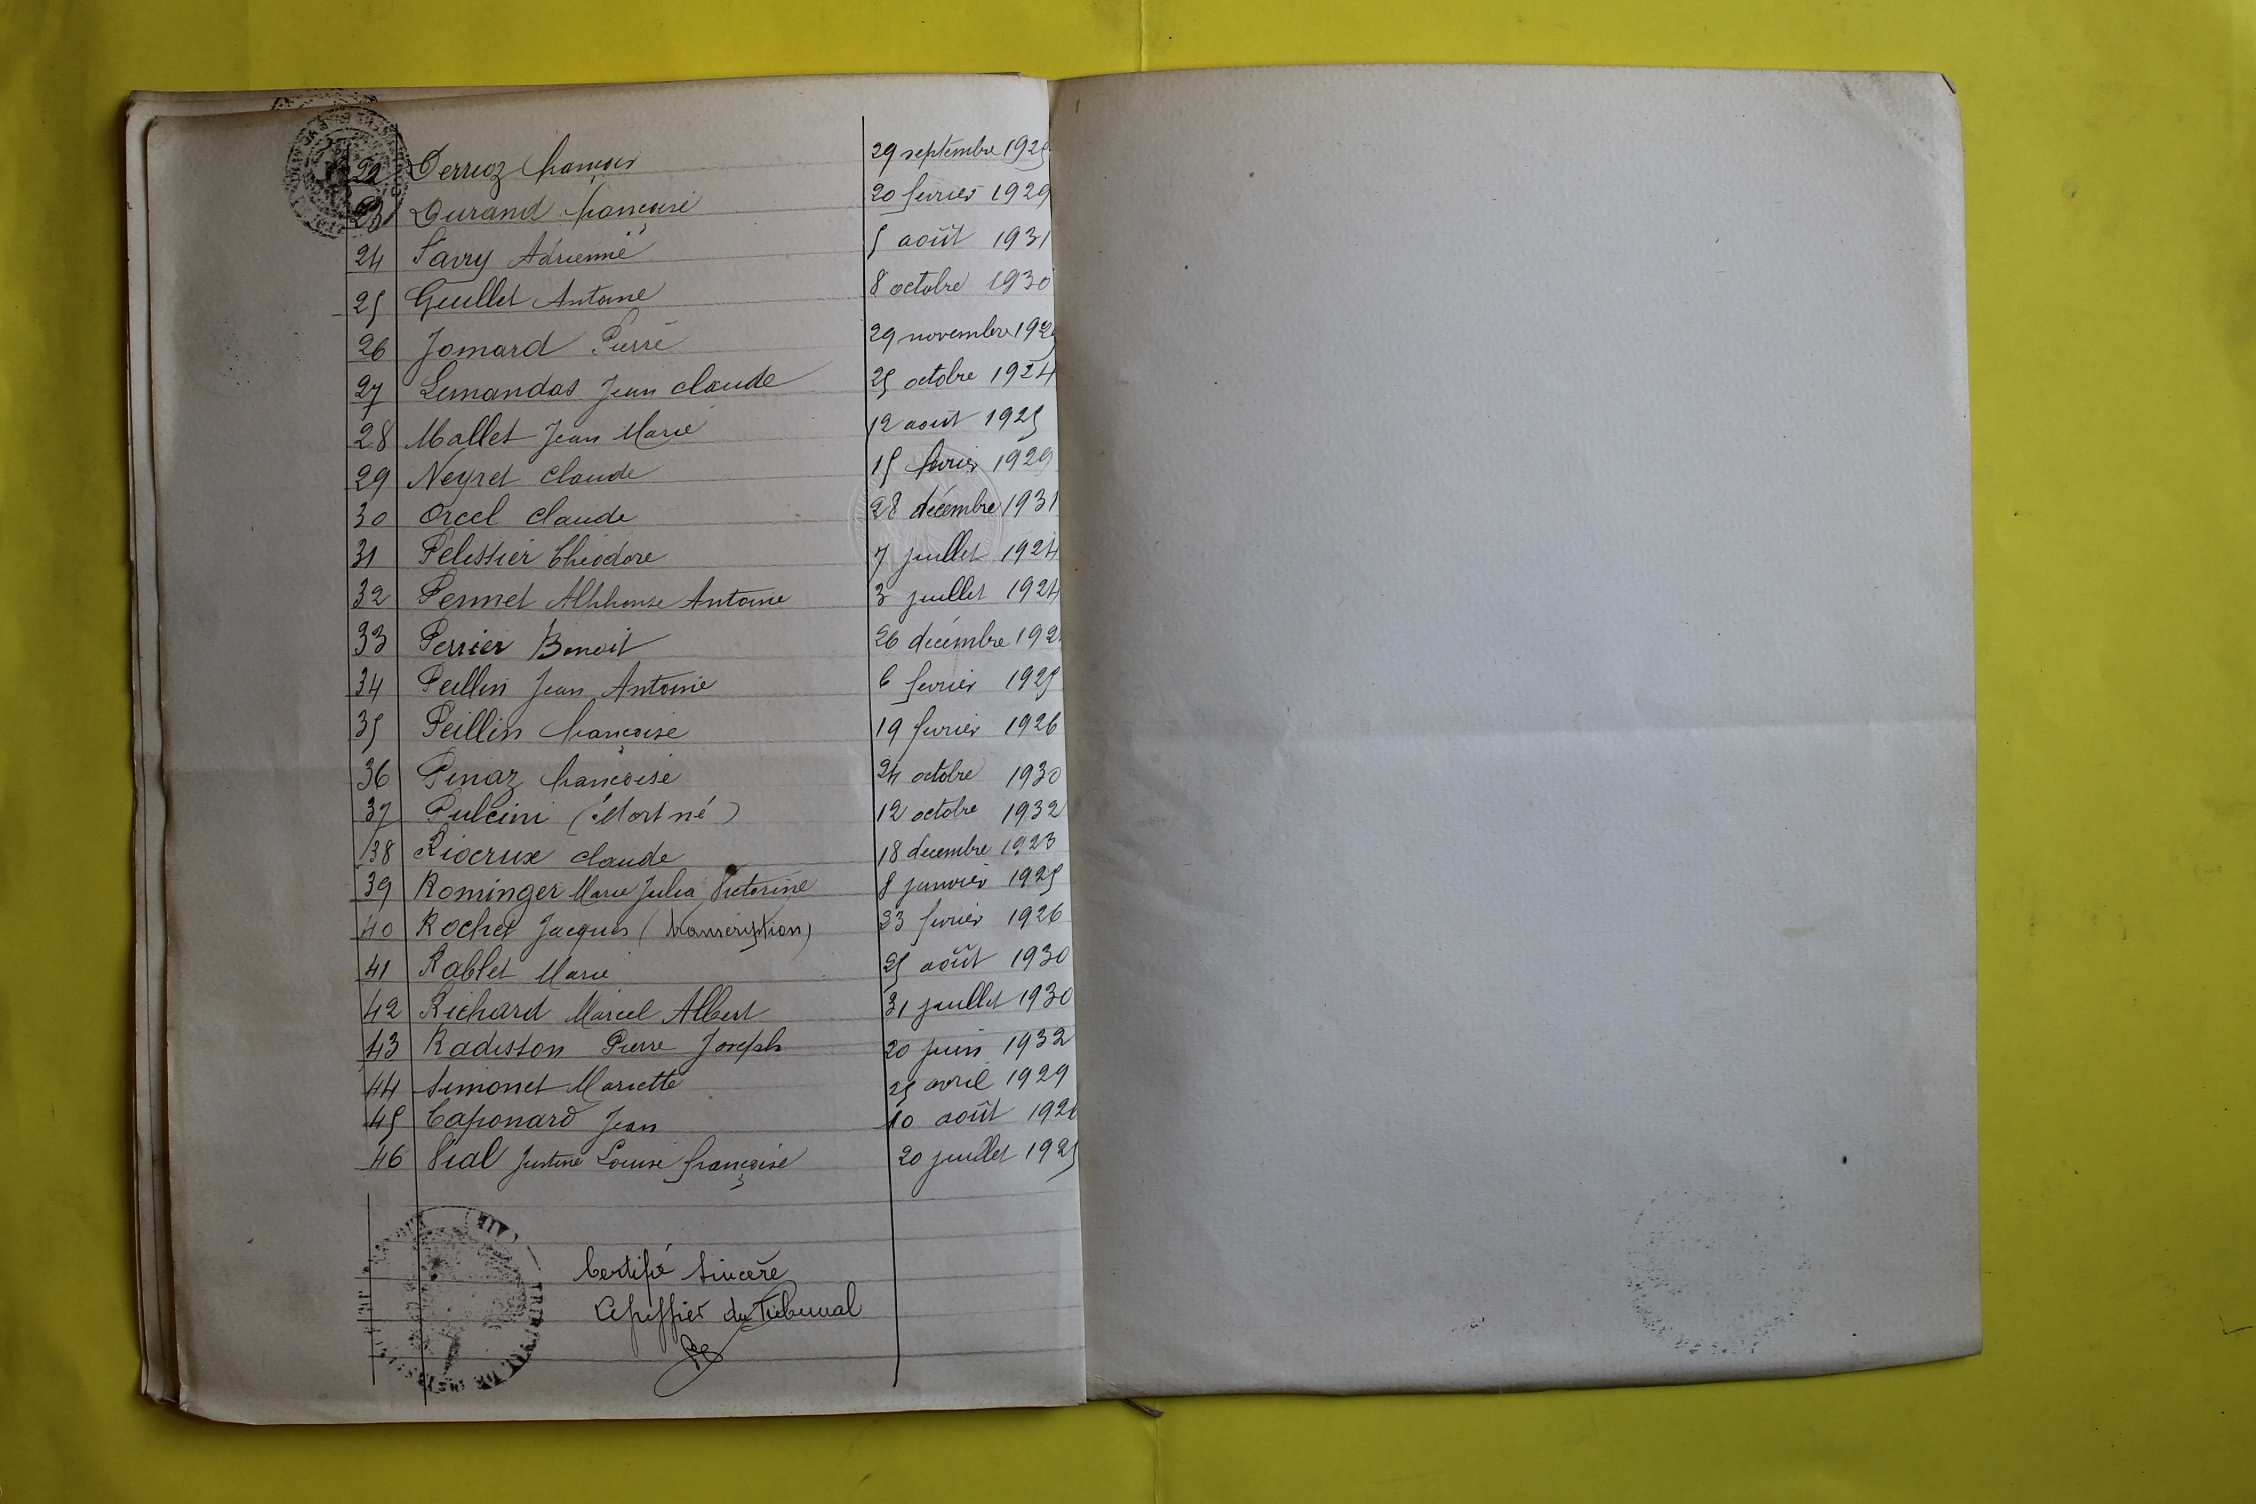 22 Derrioz françois 29 septembre 1925
23 Durand françoise 20 fevrier 1929
24 Favry Adrienne 5 août 1931
25 Guillet Antoine 8 octobre 1930
26 Jomard Pierre 29 novembre
27 Limandas Jean claude 25 octobre 1924
28 Mallet Jean Marie 12 août 1925
29 Neyret claude 15 fevrier 1929
30 Orcel claude 28 décembre 1931
31 Pelissier théodore 7 juillet 1924
32 Permet Alphonse Antoine 3 juillet 1924
33 Perrier Benoit 26 décembre
34 Peillin Jean Antoine 6 fevrier 1925
35 Peillin françoise 19 fevrier 1926
36 Pinaz françoise 24 octobre 1930
37 Pulcini (Mort né) 12 octobre 1932
38 Riocrux claude 18 decembre 1923
39 Rominger Marie Julia Victorine 8 janvier 1925
40 Rochet Jacques (transcription) 23 fevrier 1926
41 Rablet Marie 25 août 1930
42 Richard Marcel Albert 31 juillet 1930
43 Radisson Pierre Joseph 20 juin 1932
44 Simonet Mariette 25 avril 1929
45 Taponard Jean 10 août
46 Vial Justine Louise françoise 20 juillet 1925
Certifié sincère
Le greffier du Tribunal